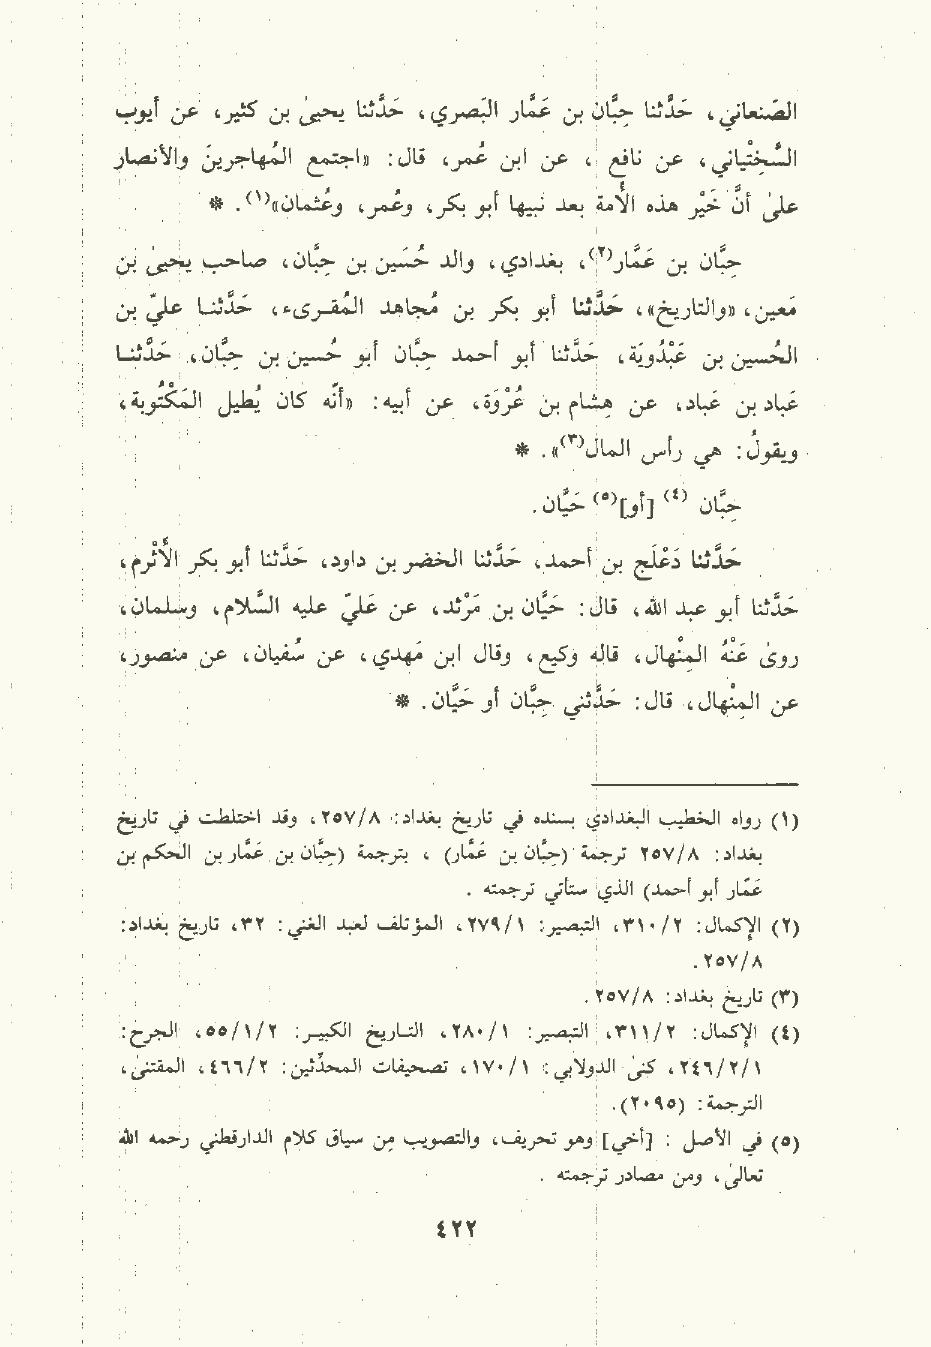 الصَنعاني، حَدَّثنا حِبَّان بن عَمَّار البَصري، حَدَّثنا يحيىٰ بن كثير، عن أيوب
السَّخْتِياني، عن نافع، عن ابن عُمر، قال: «اجتمع المُهاجرينَ والأنصار
علىٰ أنَّ خَيْر هذه الأُمة بعد نبيها أبو بكر، وعُمر، وعُثمان»(١). *
حِبَّان بن عَمَّار(٢)، بغدادي، والد حُسَين بن حِبَّان، صاحب يحيىٰ بن
مَعين، «والتاريخ»، حَدَّثنا أبو بكر بن مُجاهد المُقـرىء، حَدَّثنـا عليّ بن
الحُسين بن عَبْدُويَة، حَدَّثنا أبو أحمد حِبَّان أبو حُسين بن حِبَّان، حَدَّثنـا
عَباد بن عَباد، عن هِشام بن عُرْوَة، عن أبيه: «أنَّه كان يُطيل المَكْتُوبة،
ويقولُ: هي رأس المال(٣)». *
حِبَّان (٤) [أو](٥) حَيَّان.
حَدَّثنا دَعْلَج بن أحمد، حَدَّثنا الخضر بن داود، حَدَّثنا أبو بكر الأَثْرم،
حَدَّثنا أبو عبد الله، قال: حَيَّان بن مَرْثد، عن عَليّ عليه السَّلام، وسلمان،
روىٰ عَنْهُ المِنْهال، قاله وكيع، وقال ابن مَهدي، عن سُفيان، عن منصور،
عن المِنْهال، قال: حَدَّثني حِبَّان أو حَيَّان. *
(١) رواه الخطيب البغدادي بسنده في تاريخ بغداد: ٢٥٧/٨، وقد اختلطت في تاريخ
بغداد: ٢٥٧/٨ ترجمة (حِبَّان بن عَمَّار) ، بترجمة (حِبَّان بن عَمَّار بن الحكم بن
عَمَّار أبو أحمد) الذي ستأتي ترجمته .
(٢) الإكمال: ٣١٠/٢، التبصير: ٢٧٩/١، المؤتلف لعبد الغني: ٣٢، تاريخ بغداد:
٢٥٧/٨.
(٣) تاريخ بغداد: ٢٥٧/٨.
(٤) الإكمال: ٣١١/٢، التبصير: ٢٨٠/١، التـاريخ الكبيـر: ٥٥/١/٢، الجرح:
٢٤٦/٢/١، كنىٰ الدولابي: ١٧٠/١، تصحيفات المحدِّثين: ٤٦٦/٢، المقتنىٰ،
الترجمة: (٢٠٩٥).
(٥) في الأصل : [أخي] وهو تحريف، والتصويب مِن سياق كلام الدارقطني رحمه الله
تعالىٰ، ومن مصادر ترجمته .
٤٢٢